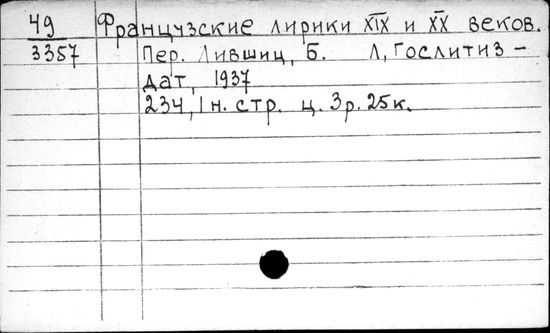 49 Французские лирики XIX и XX веков.
3357 Пер. Лившиц, Б. Л, Гослитиз-
дат, 1937
234, 1 н. стр. ц. 3р. 25к.